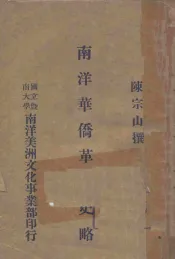 陳宗山撰
南洋華僑革 史略
國立暨
南大學
南洋美洲文化事業部印行